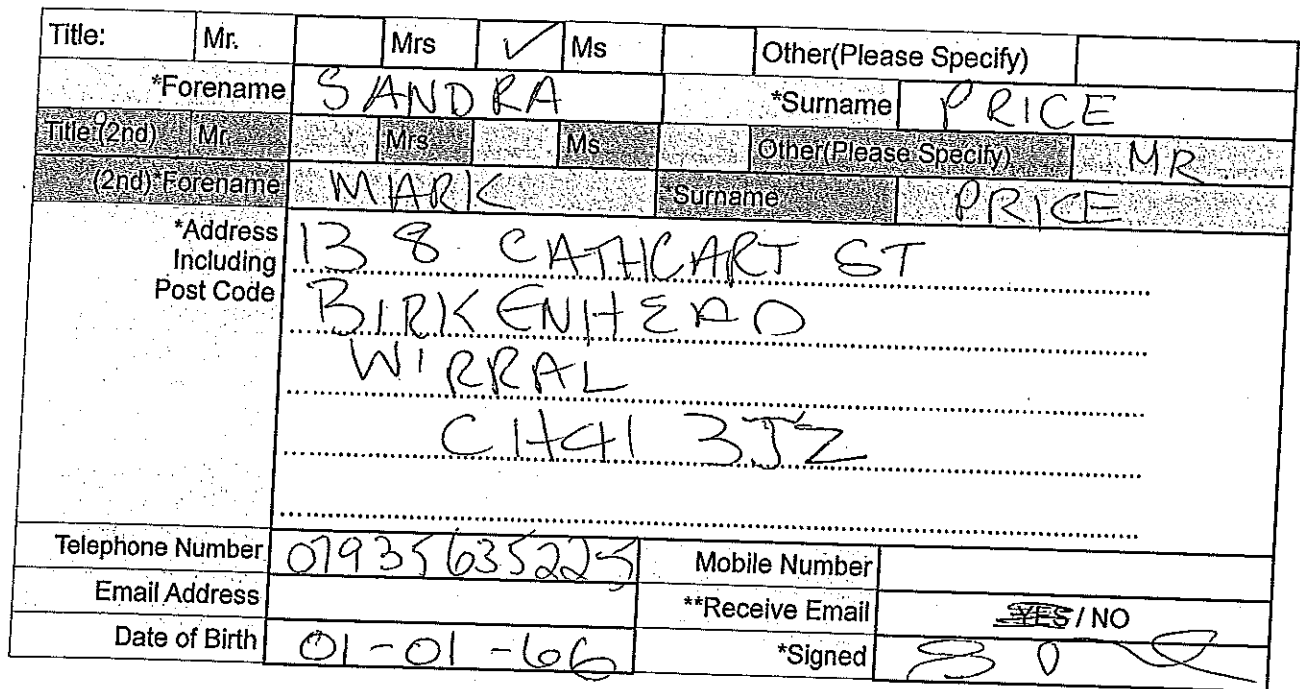 Title: Mr. Mrs ✓ Ms Other(Please Specify)
*Forename SANDRA *Surname PRICE
Title (2nd) Mr. Mrs Ms Other(Please Specify) MR
(2nd)*Forename MARK *Surname PRICE
*Address 138 CATHCART ST
Including
Post Code BIRKENHEAD
WIRRAL
CH41 3JZ
Telephone Number 07935635225 Mobile Number
Email Address **Receive Email YES / NO
Date of Birth 01-01-66 *Signed